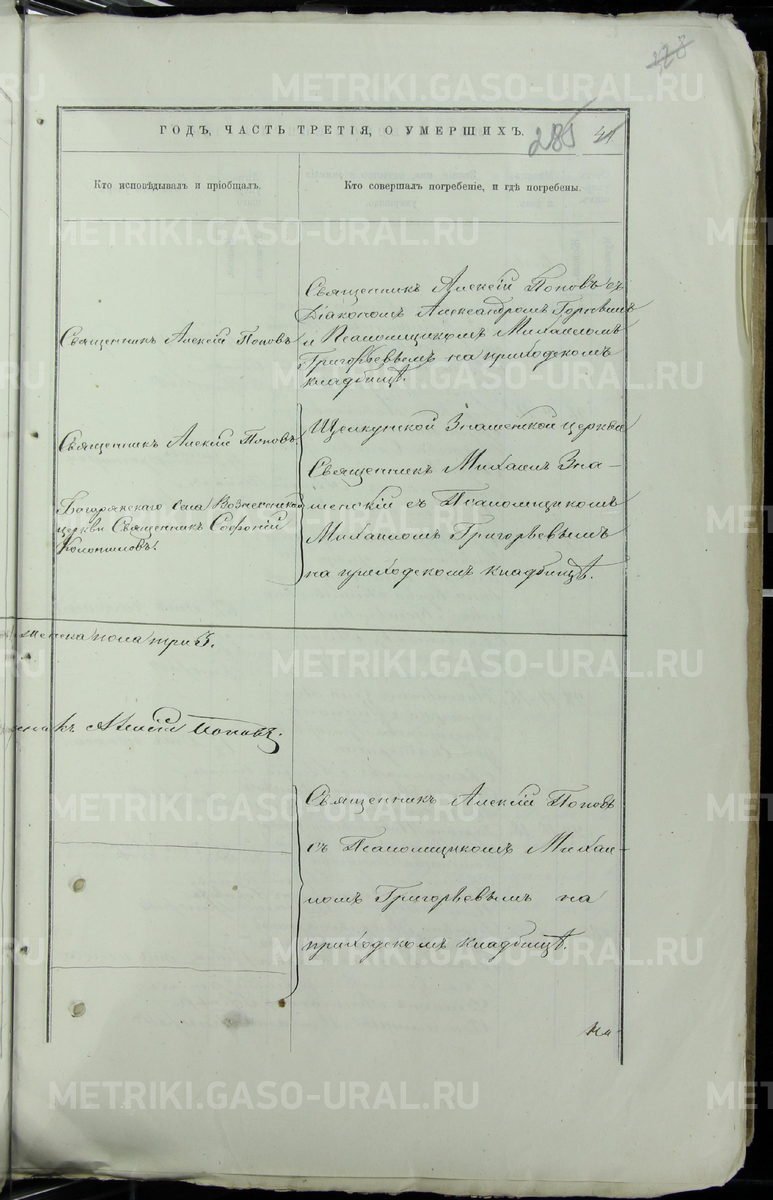 128
ГОДЪ, ЧАСТЬ ТРЕТІЯ, О УМЕРШИХЪ.
285
Кто исповѣдывалъ и пріобщалъ.
Кто совершалъ погребеніе, и гдѣ погребены.
Священникъ Алексій Поповъ
Священникъ Алексій Поповъ съ
Діакономъ Александромъ
и Псаломщикомъ Михаиломъ
Григорьевымъ на приходскомъ
кладбищѣ.
Священникъ Алексій Поповъ.
Багарякскаго села Вознесенской
церкви Священникъ Софоній
Щелкунской Знаменской церкви
Священникъ Михаилъ Зна-
менскій съ Псаломщикомъ
Михаиломъ Григорьевымъ
на приходскомъ кладбищѣ.
женска пола три 3.
Алексій Поповъ.
Священникъ Алексій Поповъ
съ Псаломщикомъ Михаи-
ломъ Григорьевымъ на
приходскомъ кладбищѣ.
METRIKI.GASO-URAL.RU